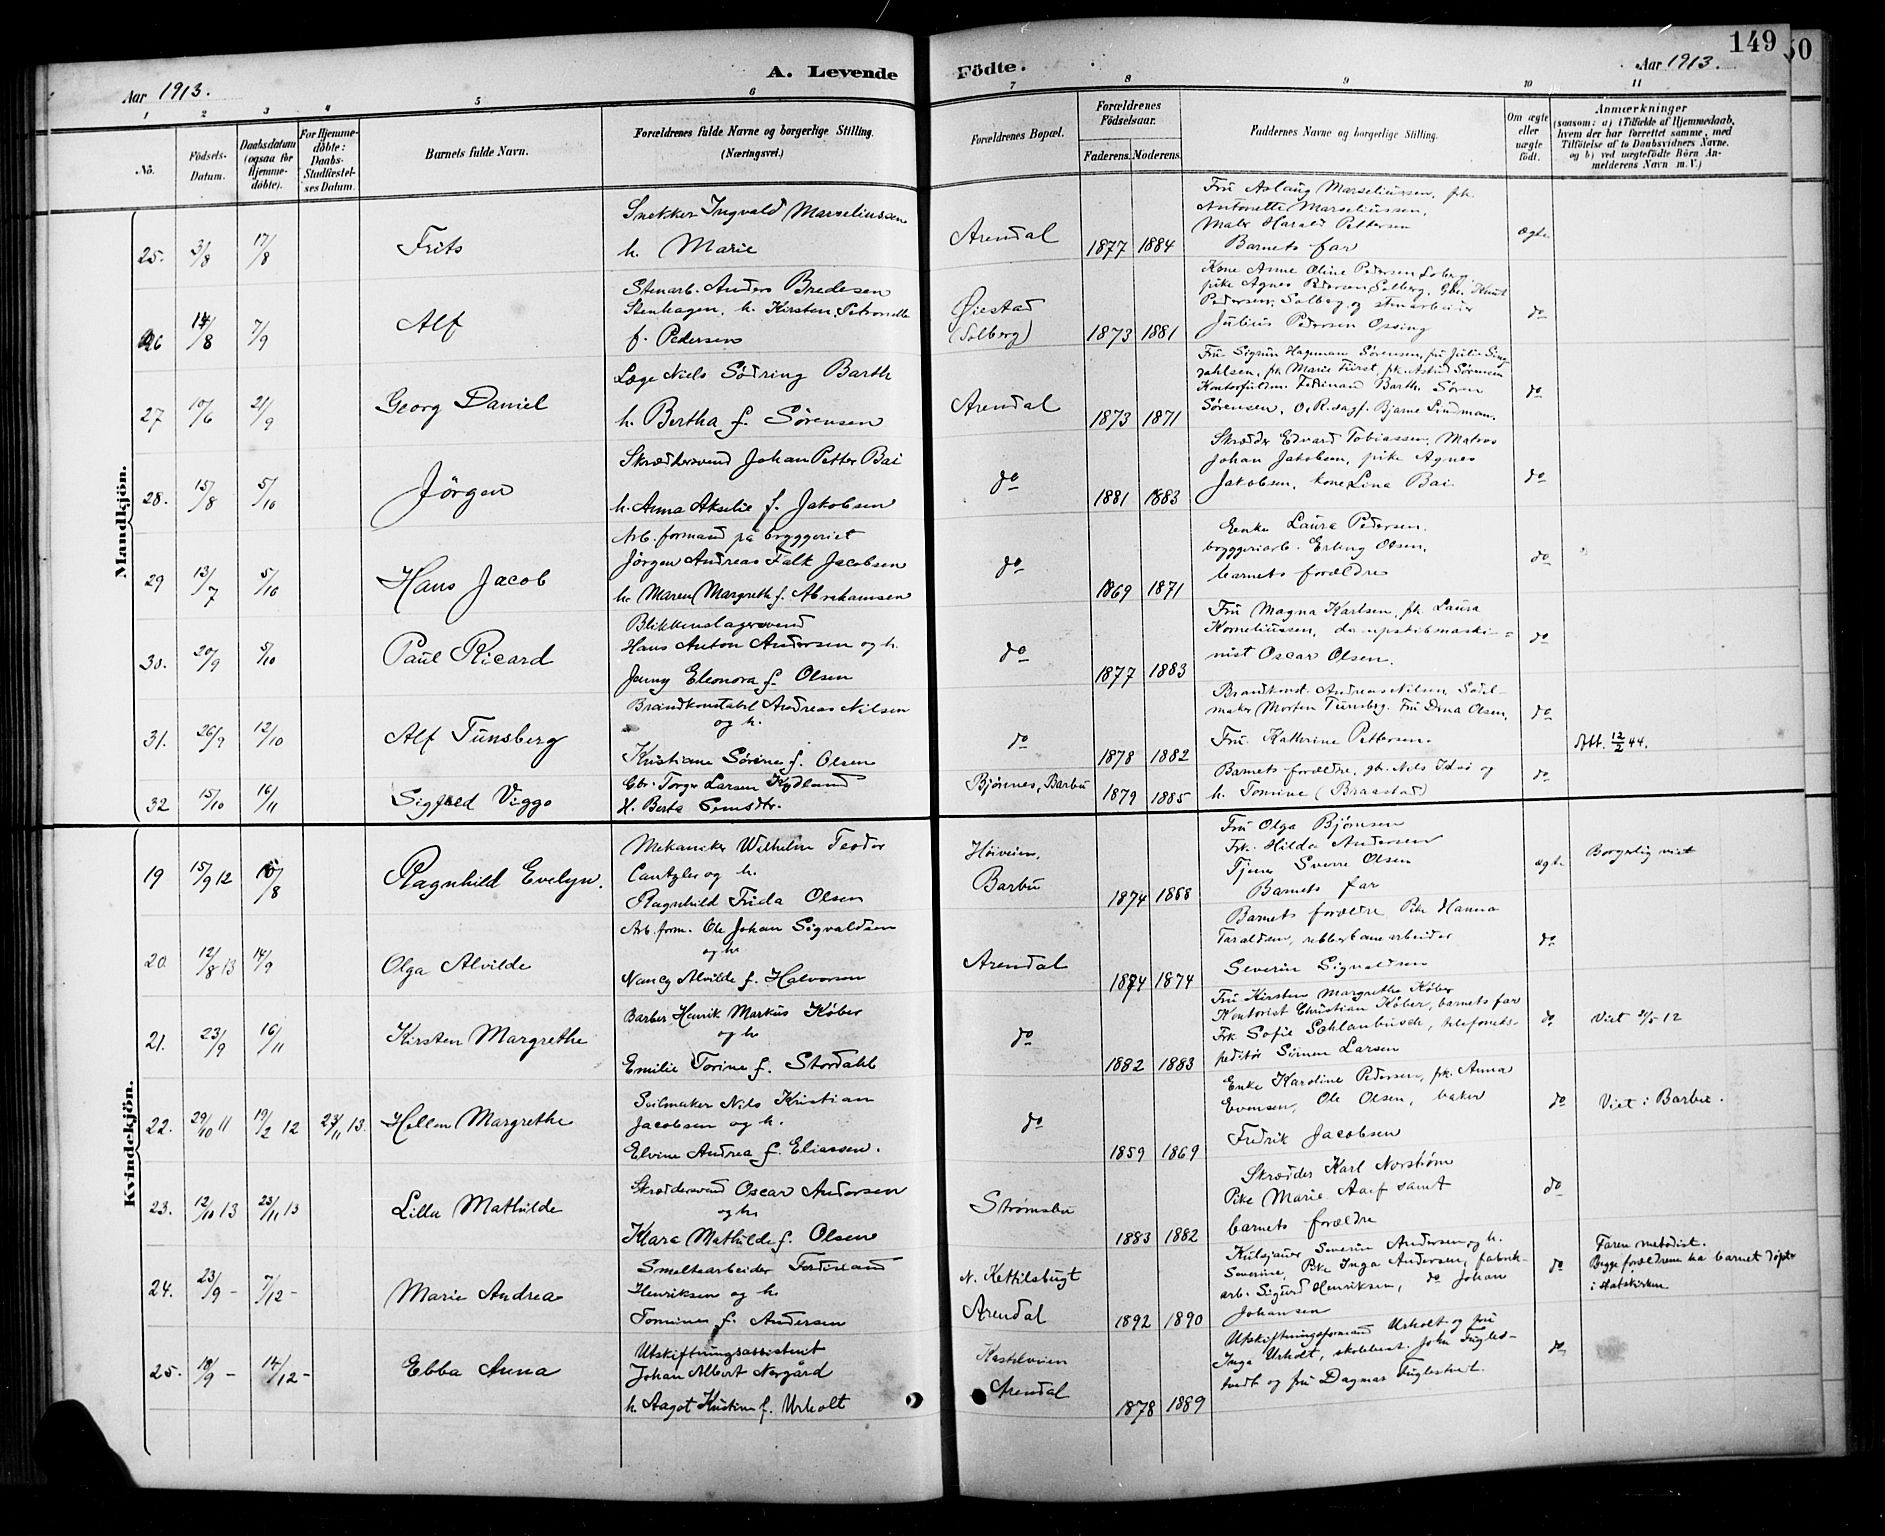 149
50
Aar 1913.
A. Levende Födte.
Aar 1913.
1 2 3 4 5 6 7 8 9 10 11
No.
Födsels-Datum.
Daabsdatum (ogsaa for Hjemme-döbte).
For Hjemme-döbte: Daabs-Stadfæstel-ses Datum.
Barnets fulde Navn.
Forældrenes fulde Navne og borgerlige Stilling.
(Næringsvei.)
Forældrenes Bopæl.
Forældrenes Födselsaar.
Faderens. Moderens.
Faddernes Navne og borgerlige Stilling.
Om ægte eller uægte födt.
Anmærkninger
(saasom: a) i Tilfælde af Hjemmedaab,
hvem der har forrettet samme, med
Tilföielse af to Daabsvidners Navne.
og b) ved uægtefödte Börn An-
melderens Navn m. V.)
Mandkjön.
25. 3/8 17/8 Frits
Snekker Ingvald Marseliussen
h. Marie
Arendal 1877 1884
Fru Aslaug Marseliussen, frk.
Antonette Marseliussen,
Maler Harald Pettersen
Barnets far
ægte
26 14/8 7/9 Alf
Stenarb. Anders Bredesen
Stenhagen, h. Kirsten Petronelle
f. Pedersen
Øiestad
(Solberg) 1873 1881
Kone Anne Oline Pedersen Solberg,
pike Agnes Pedersen, Solberg, Gbr. Knut
Pedersen, Solberg og stenarbeider
Julius Pedersen Ossing
do
27 10/6 21/9 Georg Daniel
Læge Niels Södring Barth
h. Bertha f. Sörensen
Arendal 1873 1871
Fru Sigrun Hageman Sørensen, fru Julie Sing
dahlsen, frk. Marie Fürst, frk. Astrid Sörensen
Kontorfuldm. Ferdinand Barth, Sören
Sörensen, O.R.sagf. Bjarne Lindman.
do
28. 15/8 5/10 Jörgen
Skræddersvend Johan Petter Bai
h. Anna Akselie f. Jakobsen
do 1881 1883
Skrædder Edvard Tobiassen, Matros
Johan Jakobsen, pike Agnes
Jakobsen, kone Lina Bai
do
29 13/7 5/10 Hans Jacob
Arb. formand på bryggeriet
Jörgen Andreas Falk Jacobsen
h. Maren Margreth f. Abrahamsen
do 1869 1871
Enke Laura Pedersen.
bryggeriarb. Erling Olsen.
barnets forældre
do
30. 20/9 5/10 Paul Ricard
Blikkenslagersvend
Hans Anton Andersen og h.
Jenny Eleonora f. Olsen
do 1877 1883
Fru Magna Karlsen, frk. Laura
Korneliussen, dampskibmaski-
nist Oscar Olsen.
do
31. 26/9 12/10 Alf Tunsberg
Brandkonstabel Andreas Nilsen
og h.
Kristiane Sörine f. Olsen
do 1878 1882
Brandkonst. Andreas Nilsen, Sadel-
maker Morten Tunsberg. Fru Dina Olsen,
Fru. Kathrine Pettersen.
do
Att. 12/2 44.
32 15/10 16/11 Sigfred Viggo
Gbr. Torger Larsen Kydland
H. Berta Semsdtr.
Bjönnes, Barbu 1879 1885
Barnets forældre, gbr. Nils Idsö og
h. Tomine (Braastad)
do
Kvindekjön.
19 15/9 12 10/8 Ragnhild Evelyn.
Mekaniker Wilhelm Teodor
Cantzler og h.
Ragnhild Frida Olsen
Höiveien,
Barbu 1874 1888
Fru Olga Bjørnsen
Frk. Hilda Andersen
Tjener Sverre Olsen
Barnets far
ægte
Borgerlig viet
20 12/8 13 14/9 Olga Alvilde
Arb. form. Ole Johan Sigvaldsen
og h.
Nancy Alvilde f. Halvorsen
Arendal 1874 1874
Barnets forældre, Pike Hanna
Taraldsen, rebberbanearbeider
Severin Sigvaldsen
do
21. 23/9 16/11 Kirsten Margrethe
Barber Henrik Markus Köber
og h
Emilie Torine f. Stordahl
do 1882 1883
Fru Kirsten Margrethe Köber
Kontorist Christian Köber, barnets far
Frk Sofie Schlanbusch, telefoneks-
peditör Simen Larsen
do
Viet 2/5 12
22. 29/10 11 19/2 12 23/11 13. Hellen Margrethe
Seilmaker Nils Kristian
Jacobsen og h.
Elvine Andrea f. Eliassen.
do 1859 1869
Enke Karoline Pedersen, frk. Anna
Evensen, Ole Olsen, baker
Fredrik Jacobsen
do
Viet i Barbu.
23. 12/10 13 23/11 13 Lilla Mathilde
Skræddersvend Oscar Andersen
og h.
Klara Mathilde f. Olsen
Strømsbu 1883 1882
Skrædder Karl Norstrøm
Pike Marie Aaef samt
barnets forældre
do
24. 23/9 - 7/12 - Marie Andrea
Smeltearbeider Ferdinand
Henriksen og h.
Tomine f. Andersen
N. Kettilsbugt
Arendal 1892 1890
Kulsjauer Severin Andersen og h.
Severine, Pike Inga Andersen, fabrik-
arb. Sigurd Henriksen, do Johan
Johansen
do
Faren metodist.
Begge forældrene ha barnet døpt
i statskirken
25. 19/9 - 14/12 - Ebba Anna
Utskiftningsassistent
Johan Albert Norgård
h. Aagot Kristine f. Urholt
Kastelveien
Arendal 1878 1889
Utskiftningsformand Urholt og fru
Inga Urholt, skobbest. John Fugles-
tvedt og fru Dagmar Fuglestvedt.
do